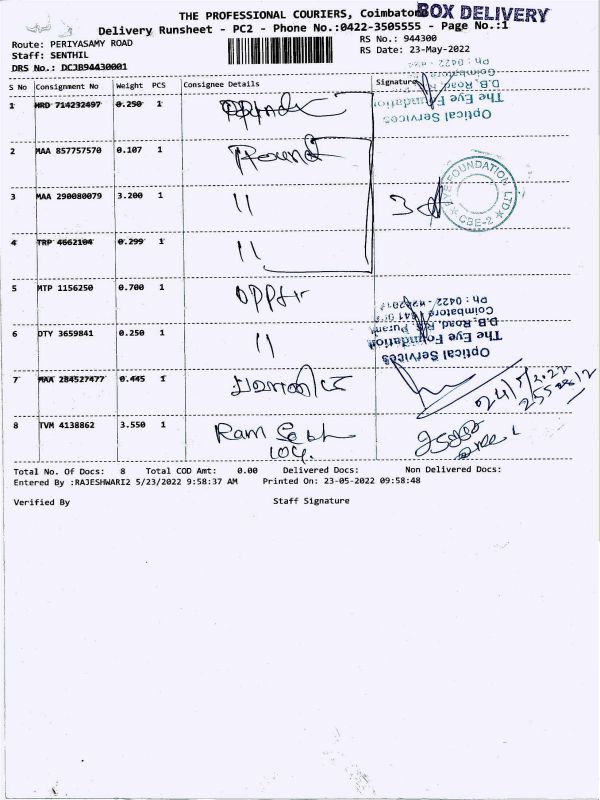 THE PROFESSIONAL COURIERS, Coimbator
BOX DELIVERY
Delivery Runsheet - PC2 - Phone No.:0422-3505555 - Page No.:1
Route: PERIYASAMY ROAD
RS No.: 944300
Staff: SENTHIL
RS Date: 23-May-2022
DRS No.: DCJB94430001
S No Consignment No Weight PCS Consignee Details Signature
1 MRD 714232497 0.250 1
Optical Services
The Eye Foundation
D.B. Road, R.S.
Coimbatore
Ph : 0422 - 424
2 MAA 857757570 0.107 1 Round
3 MAA 290080079 3.200 1 11
3
EYE FOUNDATION LTD
★ CBE-2 ★
4 TRP 4662104 0.299 1 11
5 MTP 1156250 0.700 1
6 DTY 3659841 0.250 1 11
Optical Services
The Eye Foundation
D.B. Road, R.S. Puram
Coimbatore 641
Ph : 0422 -
7 MAA 284527477 0.445 1
24/5/2022
8 TVM 4138862 3.550 1 Ram
104.
Total No. Of Docs: 8 Total COD Amt: 0.00 Delivered Docs: Non Delivered Docs:
Entered By :RAJESHWARI2 5/23/2022 9:58:37 AM Printed On: 23-05-2022 09:58:48
Verified By Staff Signature